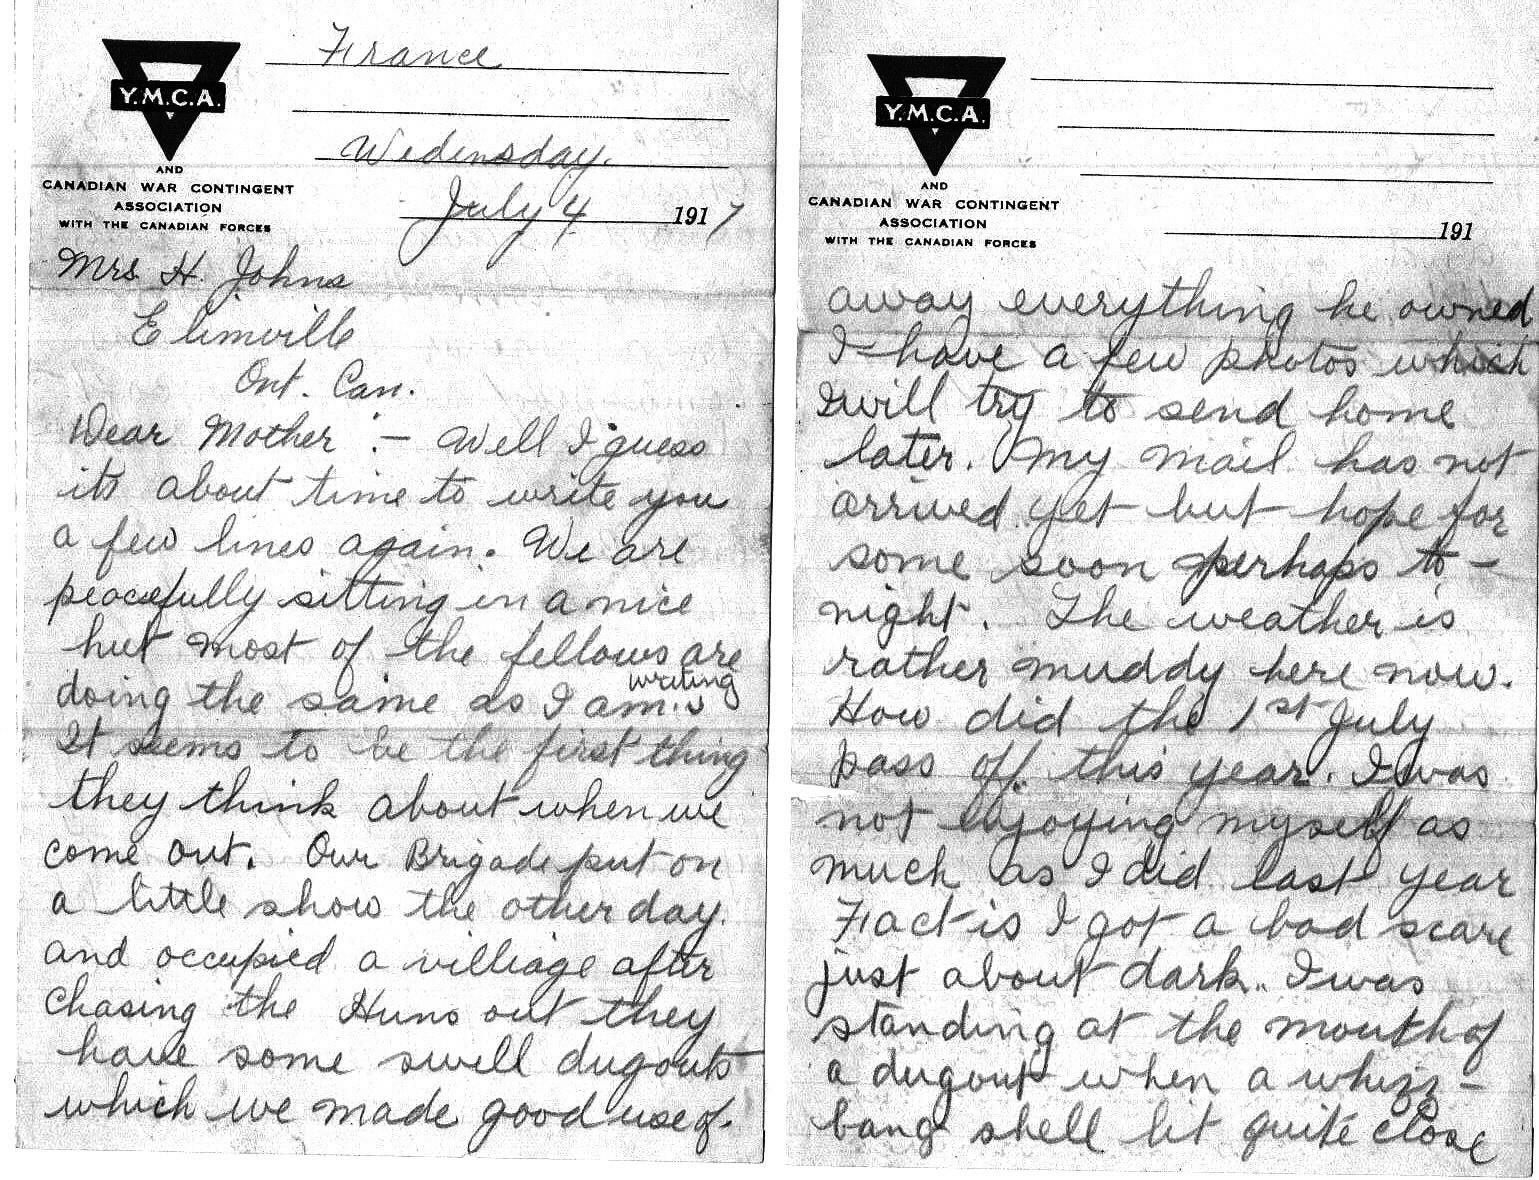 France
Y.M.C.A.
Wedensday.
AND
CANADIAN WAR CONTINGENT
ASSOCIATION
WITH THE CANADIAN FORCES
July 4 1917
Mrs H. Johns
Elimville
Ont. Can.
Dear Mother :- Well I guess
its about time to write you
a few lines again. We are
peacefully sitting in a nice
hut most of the fellows are
doing the same as I am. writing
It seems to be the first thing
they think about when we
come out. Our Brigade put on
a little show the other day.
and occupied a villiage after
chasing the Huns out they
have some swell dugouts
which we made good use of.
Y.M.C.A.
AND
CANADIAN WAR CONTINGENT
ASSOCIATION
WITH THE CANADIAN FORCES
191
away everything he owned
I have a few photos which
I will try to send home
later. My mail has not
arrived yet but hope for
some soon perhaps to-
night. The weather is
rather muddy here now.
How did the 1st July
pass off this year. I was
not enjoying myself as
much as I did last year
Fact is I got a bad scare
just about dark.. I was
standing at the mouth of
a dugout when a whizz-
bang shell lit quite close